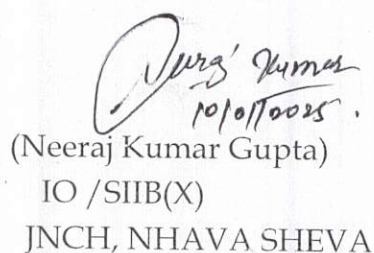 Kumar
10/01/2025.
(Neeraj Kumar Gupta)
IO /SIIB(X)
JNCH, NHAVA SHEVA